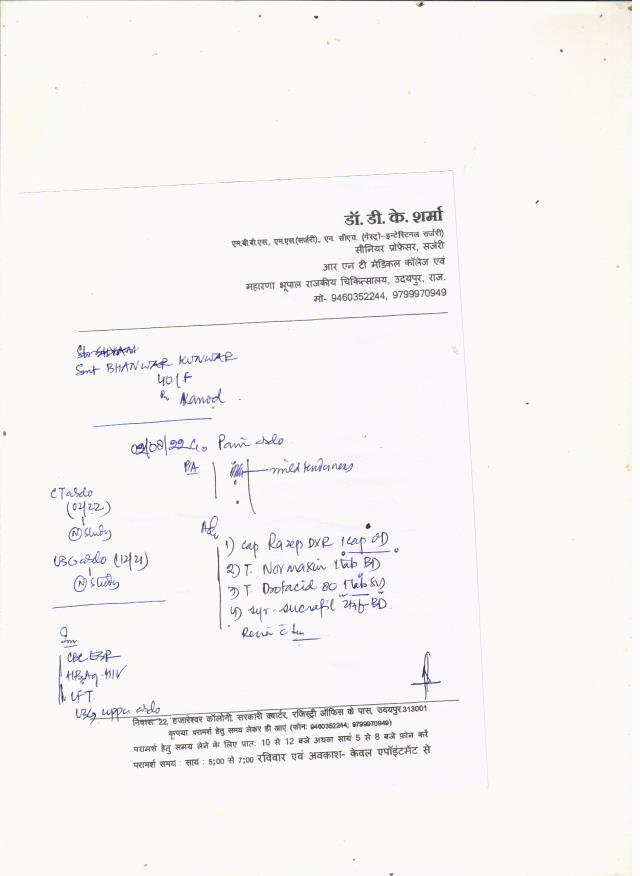 डॉ. डी. के. शर्मा
एम.बी.बी.एस. एम.एस.(सर्जरी), एम. सीएच. (गेस्ट्रो-इन्टेस्टिनल सर्जरी)
सीनियर प्रोफेसर, सर्जरी
आर एन टी मेडिकल कॉलेज एवं
महाराणा भूपाल राजकीय चिकित्सालय, उदयपुर, राज.
मो- 9460352244, 9799970949
Smt BHANWAR KUNWAR
40/F
Kanod
02/08/22 C/o Pain abdo
P/A mild tenderness
CT abdo
(02/22)
(N) study
USG abdo (12/21)
(N) study
Adv
1) Cap Razep DXR 1cap OD
2) T. Normaxin 1tab BD
3) T. Drofacid 80 1tab
4) Syr. Sucrafil 2tsf BD
Review
CBC ESR
HBsAg HIV
LFT
USG upper abdo
निवास: 22, हजारेश्वर कॉलोनी, सरकारी क्वार्टर, रजिस्ट्री ऑफिस के पास, उदयपुर 313001
कृपया परामर्श हेतु समय लेकर ही आएं (फोन: 9460352244, 9799970949)
परामर्श हेतु समय लेने के लिए प्रात: 10 से 12 बजे अथवा सायं 5 से 8 बजे फ़ोन करें
परामर्श समय : सायं : 5:00 से 7:00 रविवार एवं अवकाश- केवल एपॉइंटमेंट से